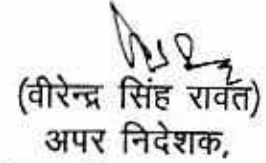 (वीरेन्द्र सिंह रावत)
अपर निदेशक,